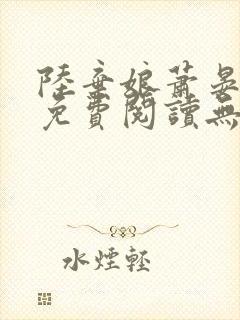 陸棄娘蕭晏
免費閱讀無
水煙輕